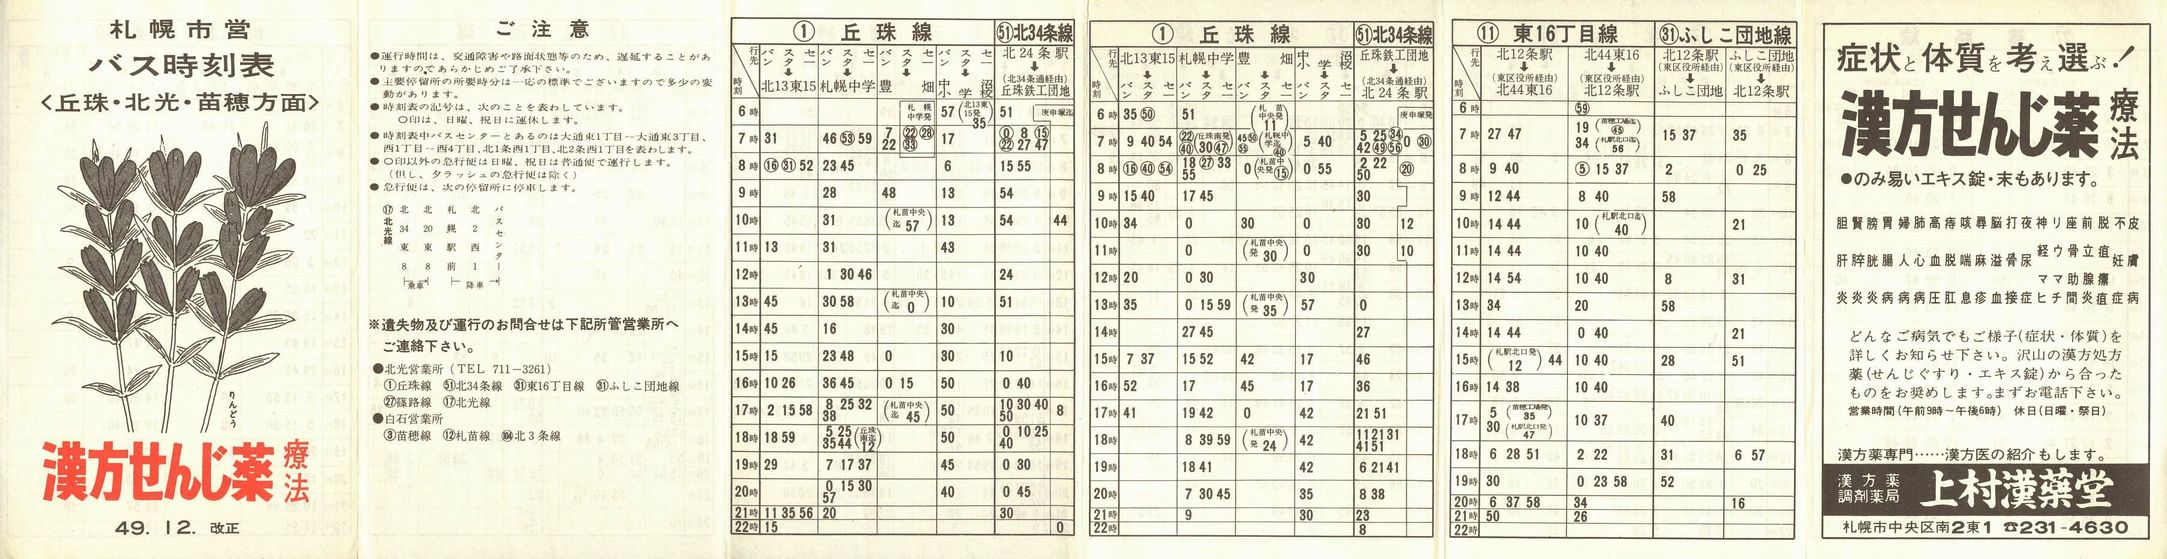 札幌市営
バス時刻表
<丘珠・北光・苗穂方面>
りんどう
漢方せんじ薬 療法
49. 12. 改正
ご注意
●運行時間は、交通障害や路面状態等のため、遅延することがあ
りますのであらかじめご了承下さい。
●主要停留所の所要時分は一応の標準でございますので多少の変
動があります。
●時刻表の記号は、次のことを表わしています。
○印は、日曜、祝日に運休します。
●時刻表中バスセンターとあるのは大通東1丁目〜大通東3丁目、
西1丁目〜西4丁目、北1条西1丁目、北2条西1丁目を表わします。
●○印以外の急行便は日曜、祝日は普通便で運行します。
(但し、タラッシュの急行便は除く)
●急行便は、次の停留所に停車します。
⑰北光線
北34東8
北20東8
札幌駅前
北2西1
バスセンター
乗車 降車
※遺失物及び運行のお問合せは下記所管営業所へ
ご連絡下さい。
●北光営業所 (TEL 711-3261)
①丘珠線 51北34条線 ⑪東16丁目線 ㉛ふしこ団地線
㉗篠路線 ⑰北光線
●白石営業所
③苗穂線 ⑫札苗線 104北3条線
① 丘珠線 51北34条線
行先 時刻
バスセンター↓北13東15
バスセンター↓札幌中学
バスセンター↓豊畑
バスセンター↓中沼小学校
北24条駅↓(北34条通経由)丘珠鉄工団地
6時 札幌中学発 57 (北13東15発 35) 51 庚申塚迄
7時 31 46 53 59 7 22 22 28 33 17 0 8 15 22 27 47
8時 16 31 52 23 45 6 15 55
9時 28 48 13 54
10時 31 (札苗中央迄 57) 13 54 44
11時 13 31 43
12時 1 30 46 24
13時 45 30 58 (札苗中央迄 0) 10 51
14時 45 16 30
15時 15 23 48 0 30 10
16時 10 26 36 45 0 15 50 0 40
17時 2 15 58 8 25 32 38 (札苗中央迄 45) 50 10 30 40 50 8
18時 18 59 5 25 35 44 (丘珠南迄 12) 50 0 10 25 40
19時 29 7 17 37 45 0 30
20時 0 15 30 57 40 0 45
21時 11 35 56 20 30
22時 15 0
① 丘珠線 51北34条線
行先 時刻
北13東15↓バスセンター
札幌中学↓バスセンター
豊畑↓バスセンター
中沼小学校↓バスセンター
丘珠鉄工団地↓(北34条通経由)北24条駅
6時 35 50 51 (札苗中央発 11) 庚申塚発
7時 9 40 54 22 40 丘珠南発 30 47 45 50 55 (札幌中学迄 40) 5 40 5 25 34 42 49 56 0 30
8時 16 40 54 18 27 33 55 0 (札苗中央発 15) 0 55 2 22 50 20
9時 15 40 17 45 30
10時 34 0 30 0 30 12
11時 0 (札苗中央発 30) 0 30 10
12時 20 0 30 30
13時 35 0 15 59 (札苗中央発 35) 57 0
14時 27 45 27
15時 7 37 15 52 42 17 46
16時 52 17 45 17 36
17時 41 19 42 0 42 21 51
18時 8 39 59 (札苗中央発 24) 42 11 21 31 41 51
19時 18 41 42 6 21 41
20時 7 30 45 35 8 38
21時 9 30 23
22時 8
⑪ 東16丁目線 ㉛ふしこ団地線
行先 時刻
北12条駅↓(東区役所経由)北44東16
北44東16↓(東区役所経由)北12条駅
北12条駅(東区役所経由)↓ふしこ団地
ふしこ団地(東区役所経由)↓北12条駅
6時 59
7時 27 47 19 (苗穂工場迄 45) 34 (札駅北口迄 56) 15 37 35
8時 9 40 5 15 37 2 0 25
9時 12 44 8 40 58
10時 14 44 10 (札駅北口迄 40) 21
11時 14 44 10 40
12時 14 54 10 40 8 31
13時 34 20 58
14時 14 44 0 40 21
15時 (札駅北口発 12) 44 10 40 28 51
16時 14 38 10 40
17時 5 (苗穂工場発 35) 30 (札駅北口発 47) 10 37 40
18時 6 28 51 2 22 31 6 57
19時 30 0 23 58 52
20時 6 37 58 34 16
21時 50 26
22時
症状と体質を考え選ぶ!
漢方せんじ薬 療法
●のみ易いエキス錠・末もあります。
胆賢膀胃婦肺高痔咳尋脳打夜神リ座前脱不皮
肝膵胱腸人心血脱喘麻溢骨尿経ウ骨立疽妊膚
ママ助腺癰
炎炎炎病病病圧肛息疹血接症ヒチ間炎疽症病
どんなご病気でもご様子(症状・体質)を
詳しくお知らせ下さい。沢山の漢方処方
薬(せんじぐすり・エキス錠)から合った
ものをお奨めします。まずお電話下さい。
営業時間(午前9時〜午後6時) 休日(日曜・祭日)
漢方薬専門……漢方医の紹介もします。
漢方薬調剤薬局 上村漢薬堂
札幌市中央区南2東1 ☎231-4630